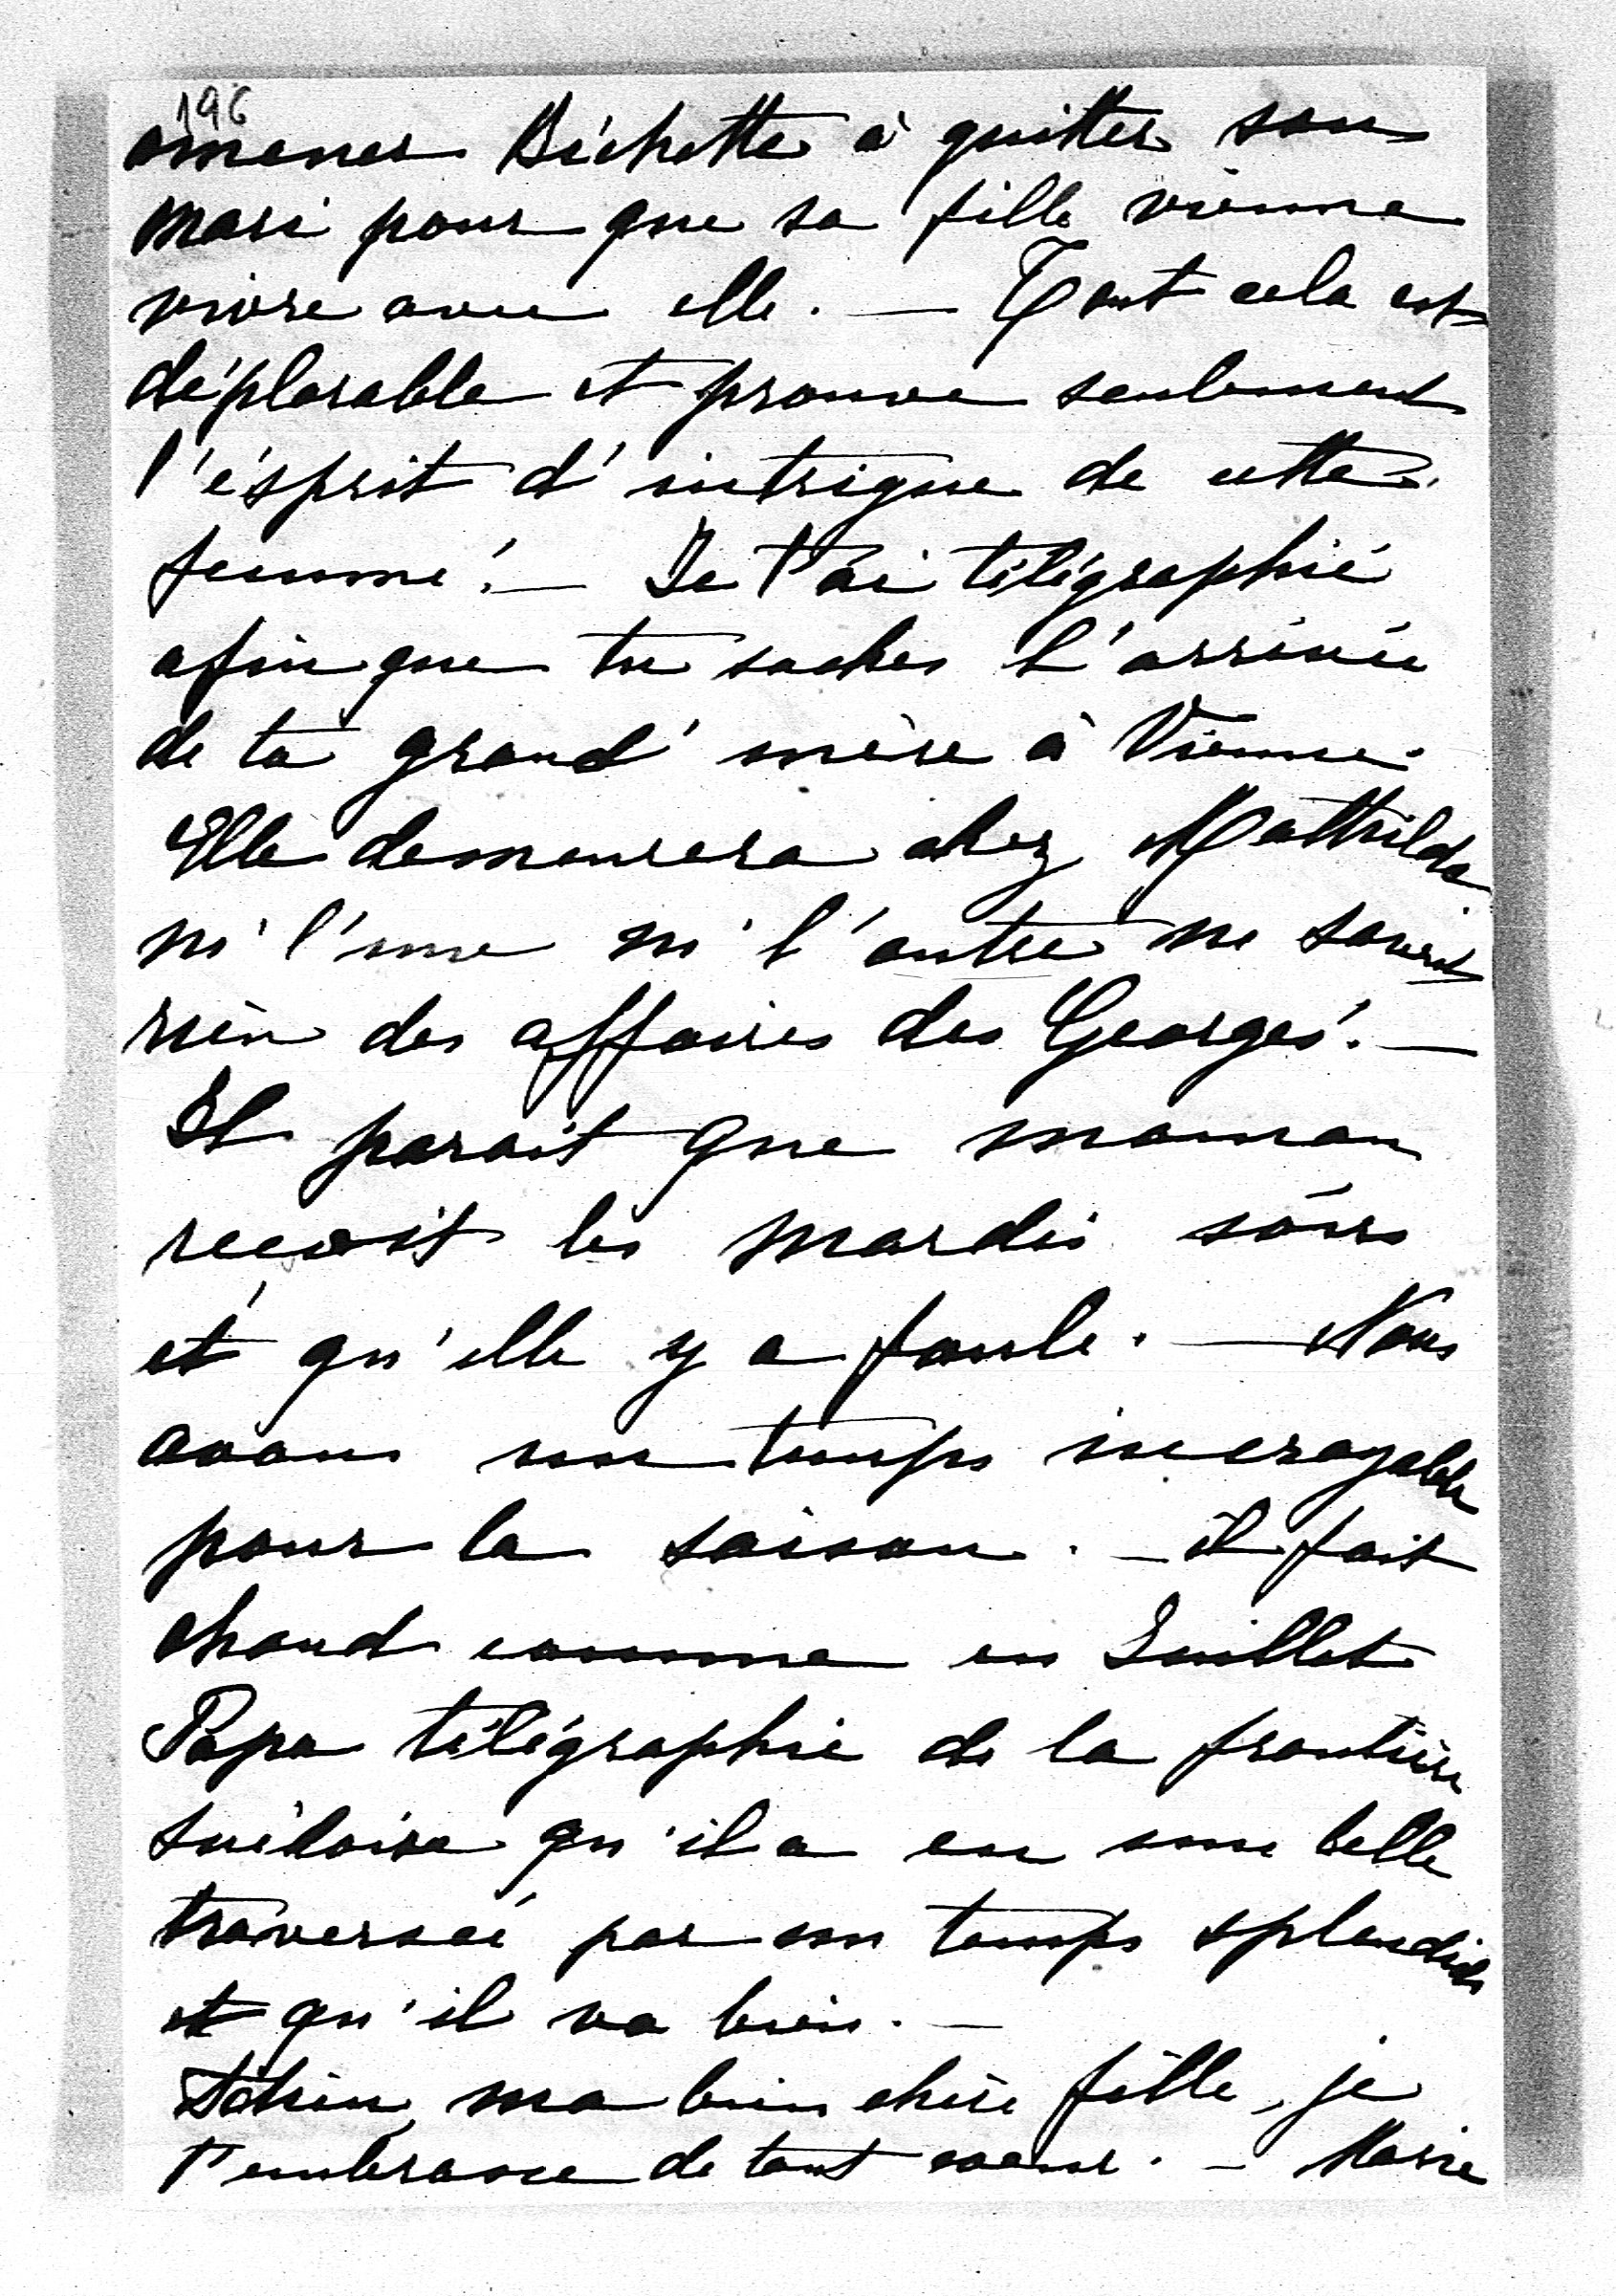 196
amener Bichette à quitter son
mari pour que sa fille vienne
vivre avec elle. — Tout cela est
déplorable et prouve seulement
l'ésprit d'intrigue de cette
femme. — Je t'ai télégraphié
afin que tu saches l'arrivée
de ta grand'mère à Vienne.
Elle demeurera chez Mathilde
ni l'une ni l'autre ne savent
rien des affaires des Georges. —
Il parait que maman
reçoit les mardis soirs
et qu'elle y a foule. — Nous
avons un temps incroyable
pour la saison. — il fait
chaud comme en Juillet
Papa télégraphie de la frontière
suédoise qu'il a eu une belle
traversée par un temps splendide
et qu'il va bien. —
Adieu, ma bien chère fille, je
t'embrasse de tout coeur. — Marie